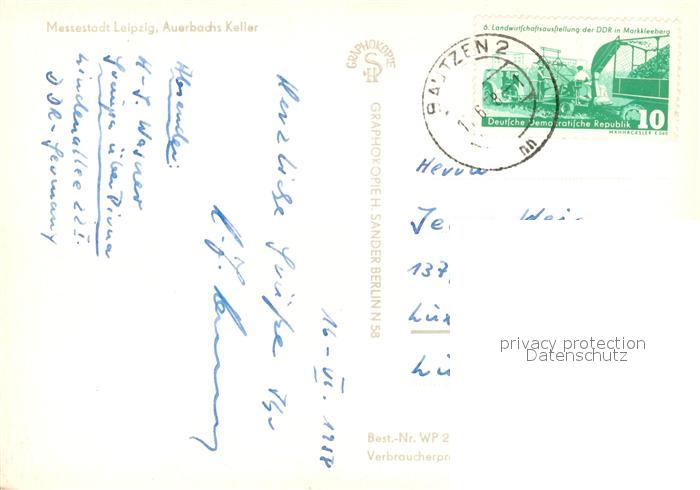 Messestadt Leipzig, Auerbachs Keller
Absender:
H-J. Wagner
über Pirna
Lindenallee 22 I.
DDR-Germany
Herzliche Grüße Ihr
16-VI. 1958
GRAPHOKOPIE
GRAPHOKOPIE H. SANDER BERLIN N 58
6. Landwirtschaftsausstellung der DDR in Markkleeberg
Deutsche Demokratische Republik 10
BAUTZEN 2
Herrn
137,
privacy protection
Datenschutz
Best.-Nr. WP 2
Verbraucherpr